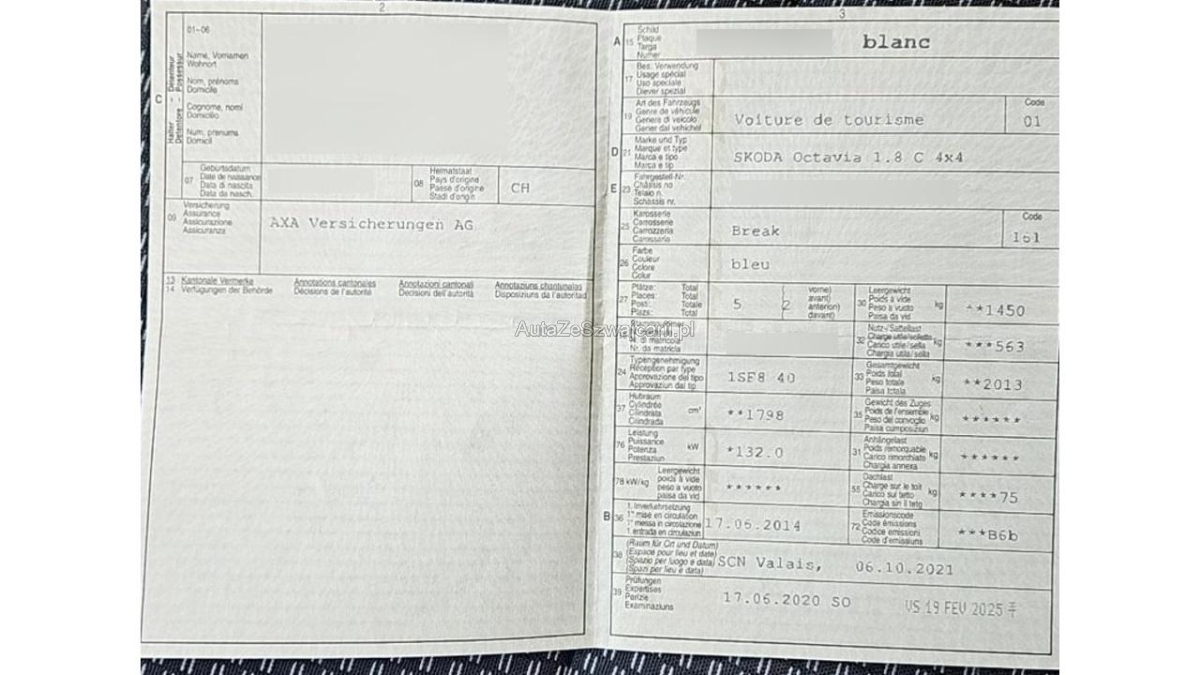 2
01-06
Halter - Détenteur
Detentore - Possessur
C
Name, Vornamen
Wohnort
Nom, prénoms
Domicile
Cognome, nomi
Domicilio
Num, prenums
Domicil
07
Geburtsdatum
Date de naissance
Data di nascita
Data da nasch.
08
Heimatstaat
Pays d'origine
Paese d'origine
Stadi d'origin
CH
09
Versicherung
Assurance
Assicurazione
Assicuranza
AXA Versicherungen AG
13 Kantonale Vermerke
14 Verfügungen der Behörde
Annotations cantonales
Décisions de l'autorité
Annotazioni cantonali
Decisioni dell'autorità
Annotaziuns chantunalas
Disposiziuns da l'autoritad
AutaZeSzwajcarii.pl
3
A 15
Schild
Plaque
Targa
Numer
blanc
17
Bes. Verwendung
Usage spécial
Uso speciale
Diever spezial
19
Art des Fahrzeugs
Genre de véhicule
Genere di veicolo
Gener dal vehichel
Voiture de tourisme
Code
01
D 21
Marke und Typ
Marque et type
Marca e tipo
Marca e tip
SKODA Octavia 1.8 C 4x4
E 23
Fahrgestell-Nr.
Châssis no
Telaio n.
Schassis nr.
25
Karosserie
Carrosserie
Carrozzeria
Carossaria
Break
Code
26
Farbe
Couleur
Colore
Colur
bleu
27
Plätze: Total
Places: Total
Posti: Totale
Plazs: Total
5
2
vorne)
avant)
anteriori)
davant)
30
Leergewicht
Poids à vide
Peso a vuoto
Paisa da vid
kg
**1450
N. di matricola
Nr. da matricla
32
Nutz-/Sattellast
Charge utile/sellette
Carico utile/sella
Chargia utila/sella
kg
***563
24
Typengenehmigung
Réception par type
Approvazione del tipo
Approvaziun dal tip
1SF8 40
33
Gesamtgewicht
Poids total
Peso totale
Paisa totala
kg
**2013
37
Hubraum
Cylindrée
Cilindrata
Cilindrada
cm³
**1798
35
Gewicht des Zuges
Poids de l'ensemble
Peso del convoglio
Paisa cumposiziun
kg
******
76
Leistung
Puissance
Potenza
Prestaziun
kW
*132.0
31
Anhängelast
Poids remorquable
Carico rimorchiato
Chargia annexa
kg
******
78 kW/kg
Leergewicht
poids à vide
peso a vuoto
paisa da vid
******
55
Dachlast
Charge sur le toit
Carico sul tetto
Chargia sin il tetg
kg
****75
B 36
1. Inverkehrsetzung
1re mise en circulation
1a messa in circolazione
1. entrada en circulaziun
17.06.2014
72
Emissionscode
Code émissions
Codice emissioni
Code d'emissiuns
***B6b
38
(Raum für Ort und Datum)
(Espace pour lieu et date)
(Spazio per luogo e data)
(Spazi per lieu e data)
SCN Valais, 06.10.2021
39
Prüfungen
Expertises
Perizie
Examinaziuns
17.06.2020 SO
VS 19 FEV 2025